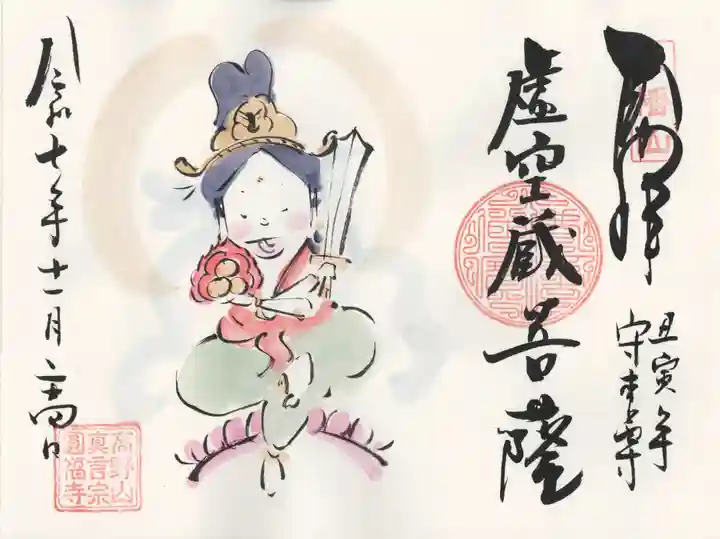 奉拝
丑寅年
守本尊
虚空蔵菩薩
令和七年十一月 日
高野山
真言宗
圓福寺